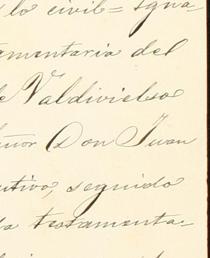 lo civil= Igna-
amentaria del
de Valdivielso
eñor Don Juan
utivo, seguido
la testamenta-